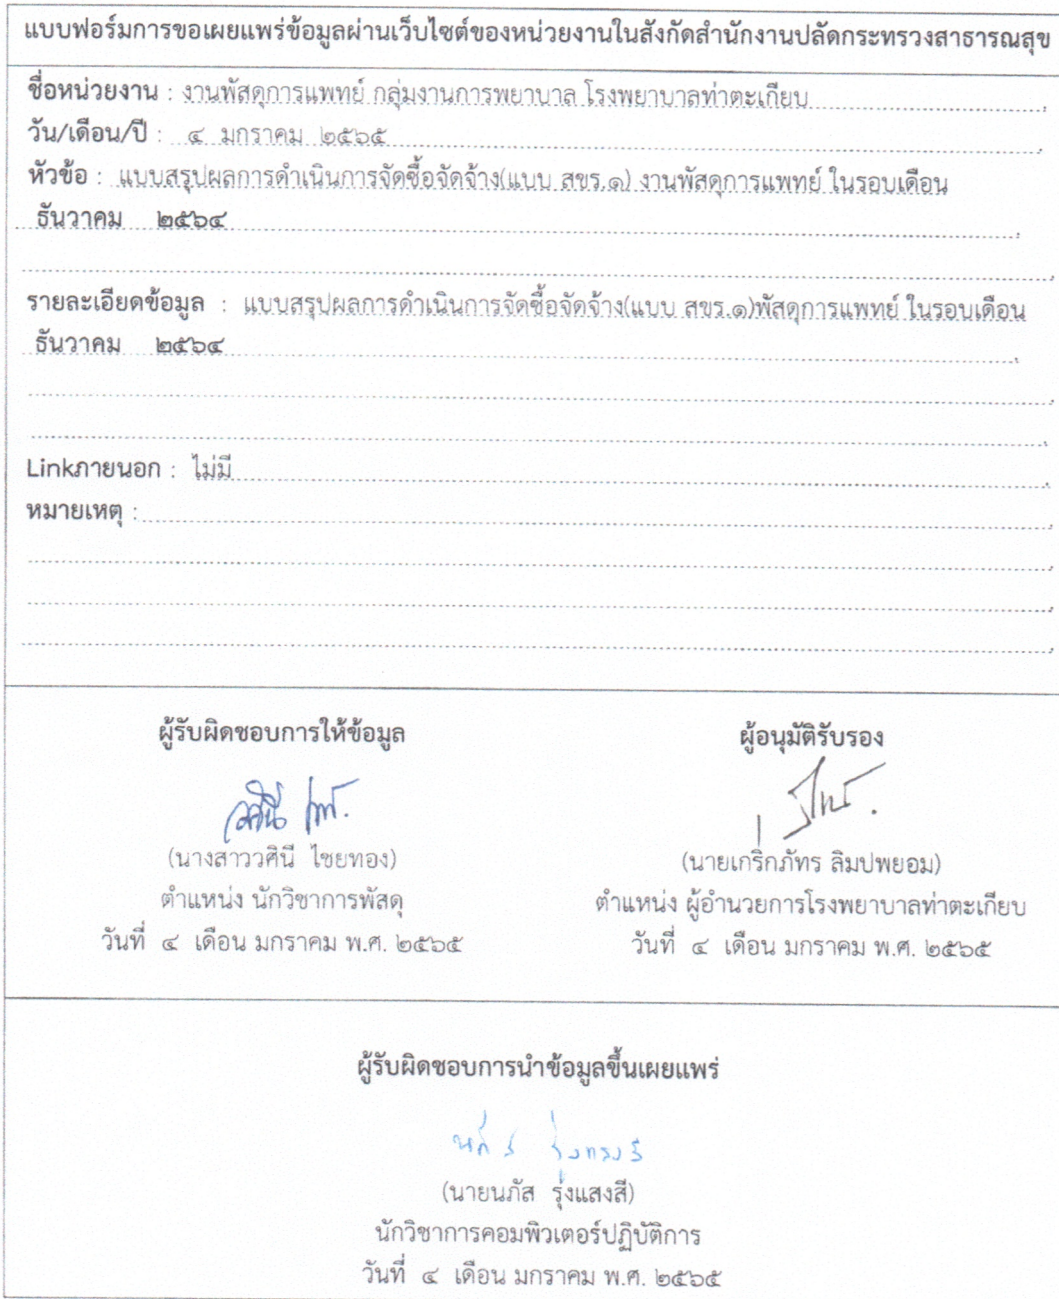 แบบฟอร์มการขอเผยแพร่ข้อมูลผ่านเว็บไซต์ของหน่วยงานในสังกัดสำนักงานปลัดกระทรวงสาธารณสุข
ชื่อหน่วยงาน : งานพัสดุการแพทย์ กลุ่มงานการพยาบาล โรงพยาบาลท่าตะเกียบ
วัน/เดือน/ปี : ๔ มกราคม ๒๕๖๕
หัวข้อ : แบบสรุปผลการดำเนินการจัดซื้อจัดจ้าง(แบบ สขร.๑) งานพัสดุการแพทย์ ในรอบเดือน
ธันวาคม ๒๕๖๔
รายละเอียดข้อมูล : แบบสรุปผลการดำเนินการจัดซื้อจัดจ้าง(แบบ สขร.๑)พัสดุการแพทย์ ในรอบเดือน
ธันวาคม ๒๕๖๔
Linkภายนอก : ไม่มี
หมายเหตุ :
ผู้รับผิดชอบการให้ข้อมูล
(นางสาววศินี ไชยทอง)
ตำแหน่ง นักวิชาการพัสดุ
วันที่ ๔ เดือน มกราคม พ.ศ. ๒๕๖๕
ผู้อนุมัติรับรอง
(นายเกริกภัทร ลิมปพยอม)
ตำแหน่ง ผู้อำนวยการโรงพยาบาลท่าตะเกียบ
วันที่ ๔ เดือน มกราคม พ.ศ. ๒๕๖๕
ผู้รับผิดชอบการนำข้อมูลขึ้นเผยแพร่
(นายนภัส รุ่งแสงสี)
นักวิชาการคอมพิวเตอร์ปฏิบัติการ
วันที่ ๔ เดือน มกราคม พ.ศ. ๒๕๖๕